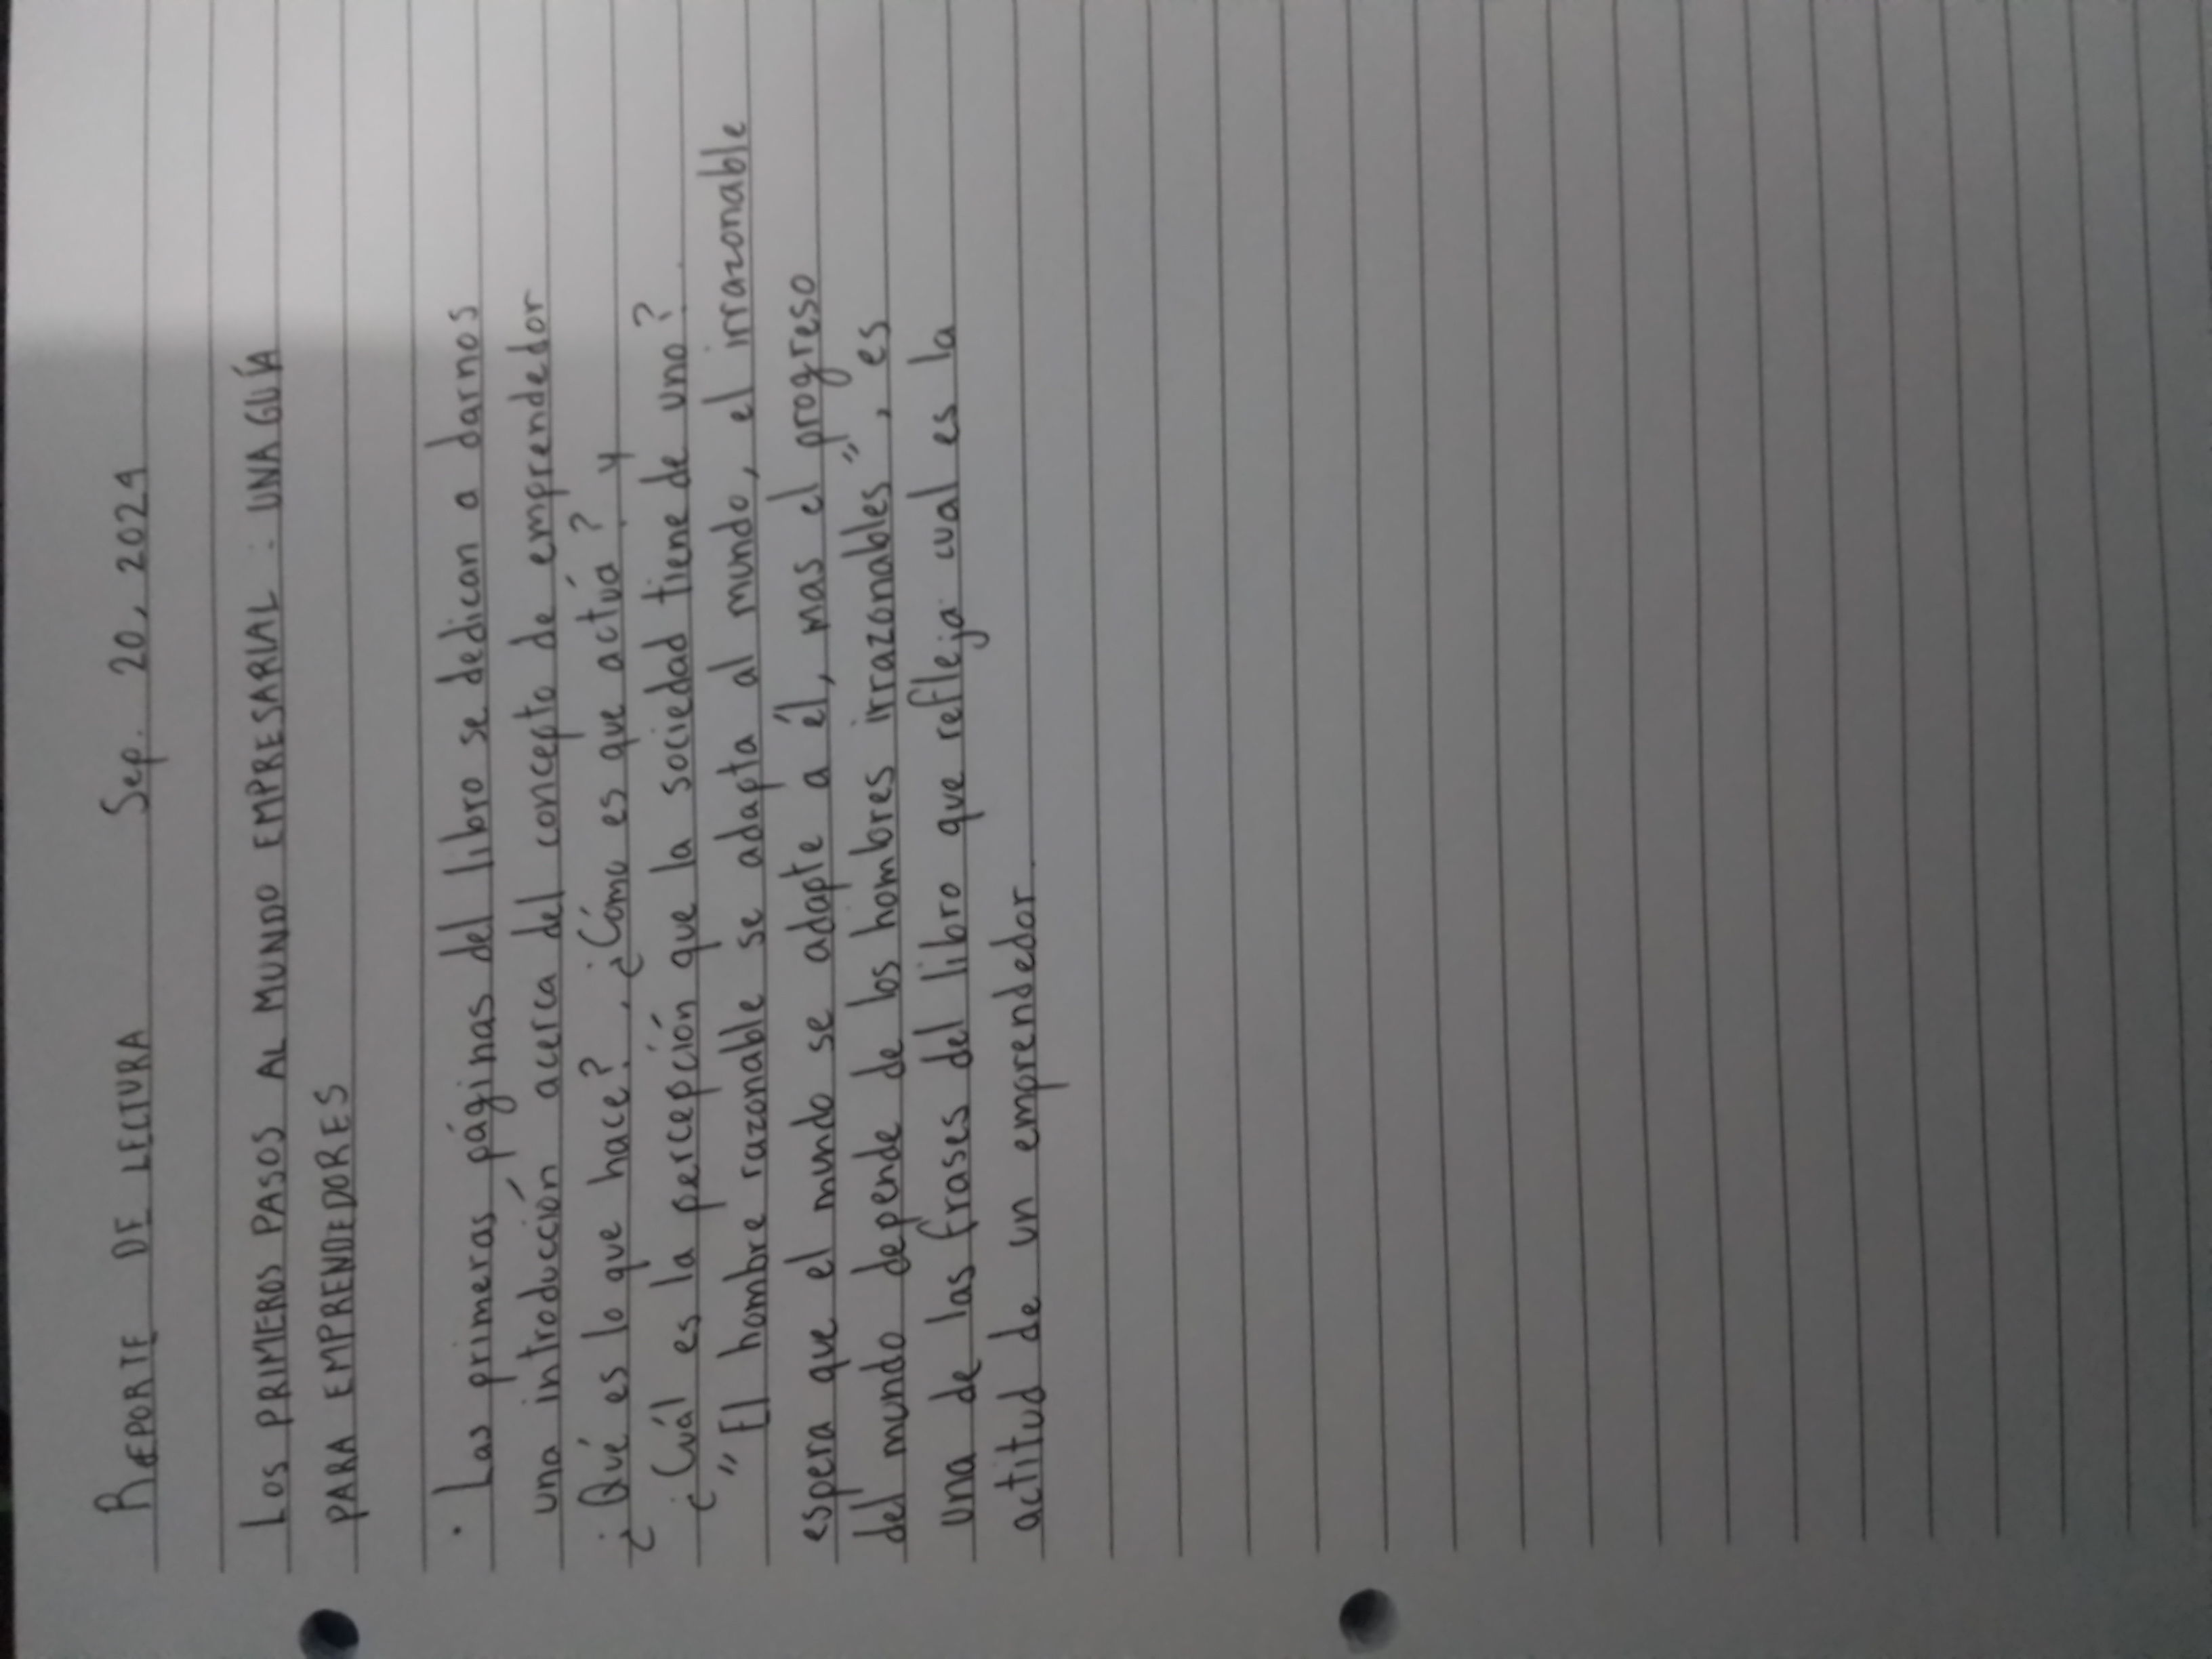 REPORTE DE LECTURA Sep. 20, 2024
LOS PRIMEROS PASOS AL MUNDO EMPRESARIAL : UNA GUÍA
PARA EMPRENDEDORES
· Las primeras páginas del libro se dedican a darnos
una introducción acerca del concepto de emprendedor
¿Qué es lo que hace?, ¿Cómo es que actúa? y
¿Cuál es la percepción que la sociedad tiene de uno?.
"El hombre razonable se adapta al mundo, el irrazonable
espera que el mundo se adapte a él, mas el progreso
del mundo depende de los hombres irrazonables", es
una de las frases del libro que refleja cual es la
actitud de un emprendedor.